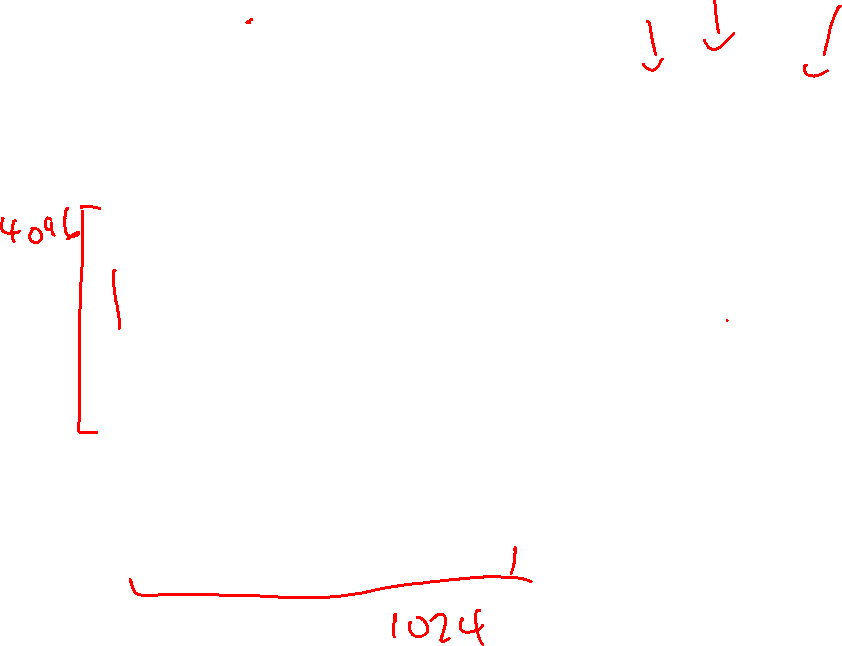 4096
1024